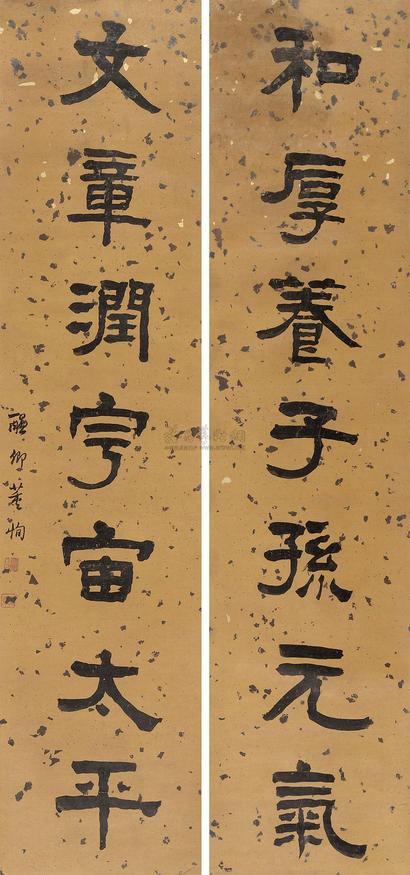 和厚養子孫元氣
文章潤宇宙太平
醖卿董恂